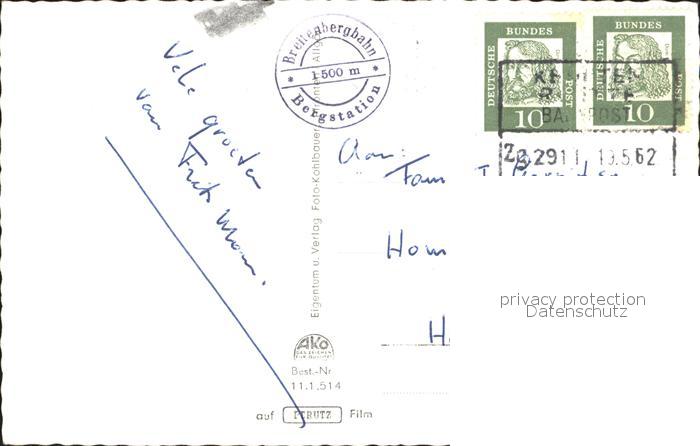 Breitenbergbahn
* 1500 m *
Bergstation
DEUTSCHE BUNDES POST
10
DEUTSCHE BUNDES POST
10
BAHNPOST
Zg 2911 19.5.62
Vele groeten
van
Frits
Aan:
Fam
Hom
H
Eigentum u. Verlag Foto-Kohlbauer
AKO
DAS ZEICHEN
FÜR QUALITÄT
Best.-Nr
11.1.514
auf PERUTZ Film
privacy protection
Datenschutz